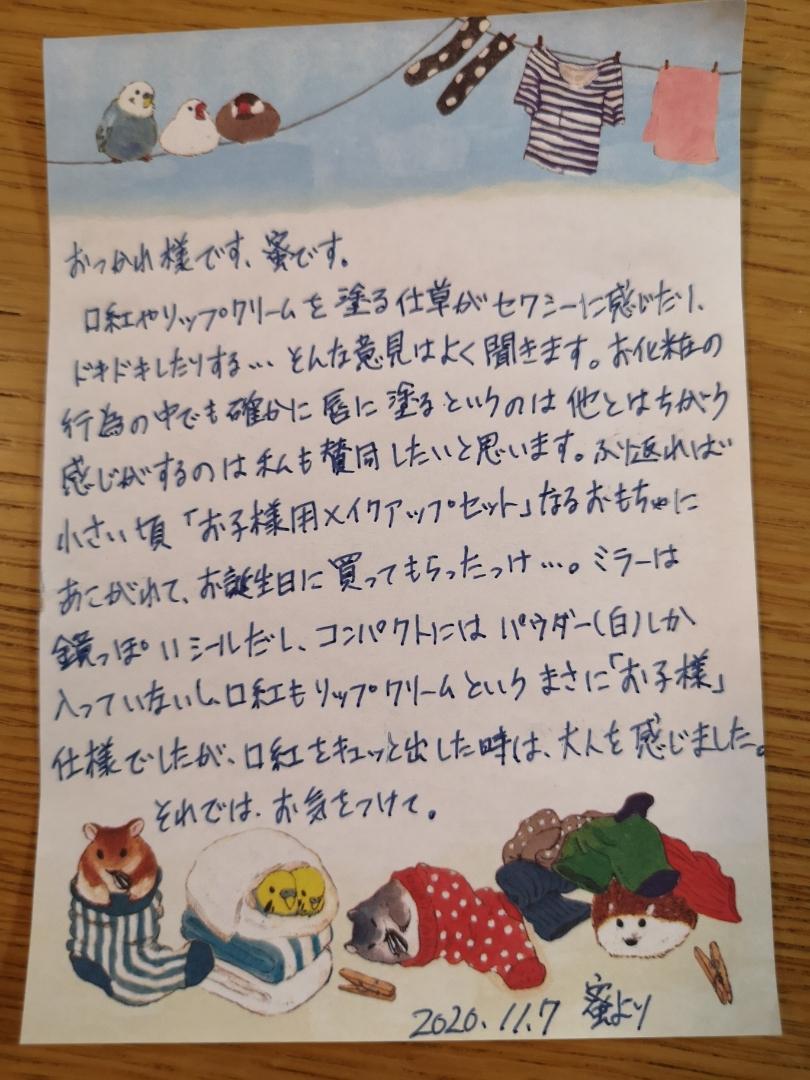 おつかれ様です、蜜です。
口紅やリップクリームを塗る仕草がセクシーに感じたり、
ドキドキしたりする… そんな意見はよく聞きます。お化粧の
行為の中でも確かに唇に塗るというのは他とはちがう
感じがするのは私も賛同したいと思います。ふり返れば
小さい頃「お子様用メイクアップセット」なるおもちゃに
あこがれて、お誕生日に買ってもらったっけ…。ミラーは
鏡っぽいシールだし、コンパクトにはパウダー(白)しか
入っていないし、口紅もリップクリームというまさに「お子様」
仕様でしたが、口紅をキュッと出した時は、大人を感じました。
それでは、お気をつけて。
2020.11.7 蜜より